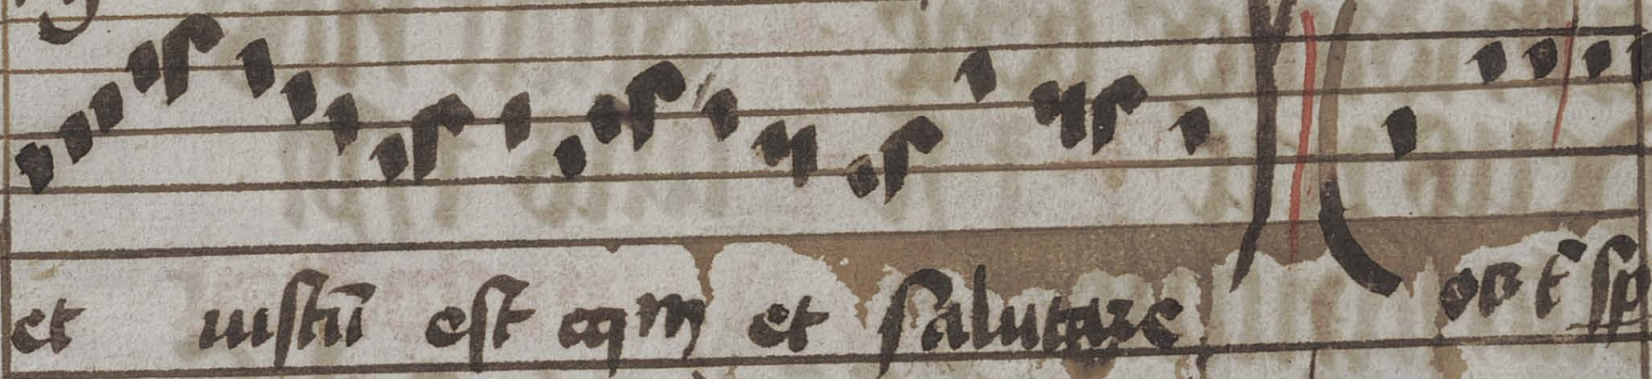 et iustū est eqm et salutare